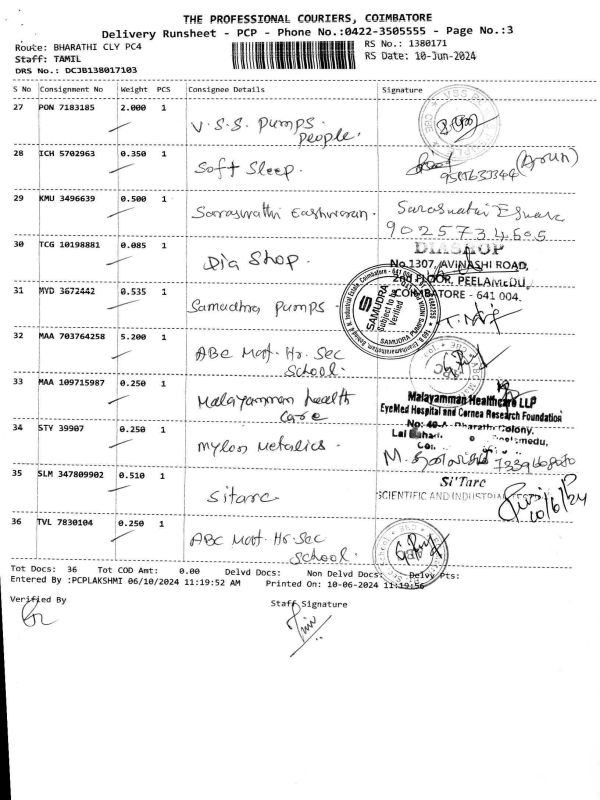 THE PROFESSIONAL COURIERS, COIMBATORE
Delivery Runsheet - PCP - Phone No.:0422-3505555 - Page No.:3
Route: BHARATHI CLY PC4
RS No.: 1380171
Staff: TAMIL
RS Date: 10-Jun-2024
DRS No.: DCJB138017103
S No Consignment No Weight PCS Consignee Details Signature
27 PON 7183185 2.000 1
V.S.S. Pumps. People.
28 ICH 5702963 0.350 1
Soft Sleep.
(Arun)
29 KMU 3496639 0.500 1
Saraswathi Eashwaran.
30 TCG 10198881 0.085 1
Dia Shop.
DIASHOP
No.1307, AVINASHI ROAD,
2nd FLOOR, PEELAMEDU,
COIMBATORE - 641 004.
31 MYD 3672442 0.535 1
Samudhra Pumps -
SAMUDRA
Subject to Verified
32 MAA 703764258 5.200 1
ABC Mat. Hr. Sec
School.
33 MAA 109715987 0.250 1
Malayamman health
Care
Malayamman Healthcare LLP
EyeMed Hospital and Cornea Research Foundation
34 STY 39907 0.250 1
Mylon Metalics -
35 SLM 347809902 0.510 1
Sitarc.
Si'Tarc
SCIENTIFIC AND INDUSTRIAL
10/6/24
36 TVL 7830104 0.250 1
ABC Mat. Hr. Sec
School.
Tot Docs: 36 Tot COD Amt: 0.00 Delvd Docs: Non Delvd Docs: Delvy Pts:
Entered By :PCPLAKSHMI 06/10/2024 11:19:52 AM Printed On: 10-06-2024 11:19:56
Verified By
Staff Signature